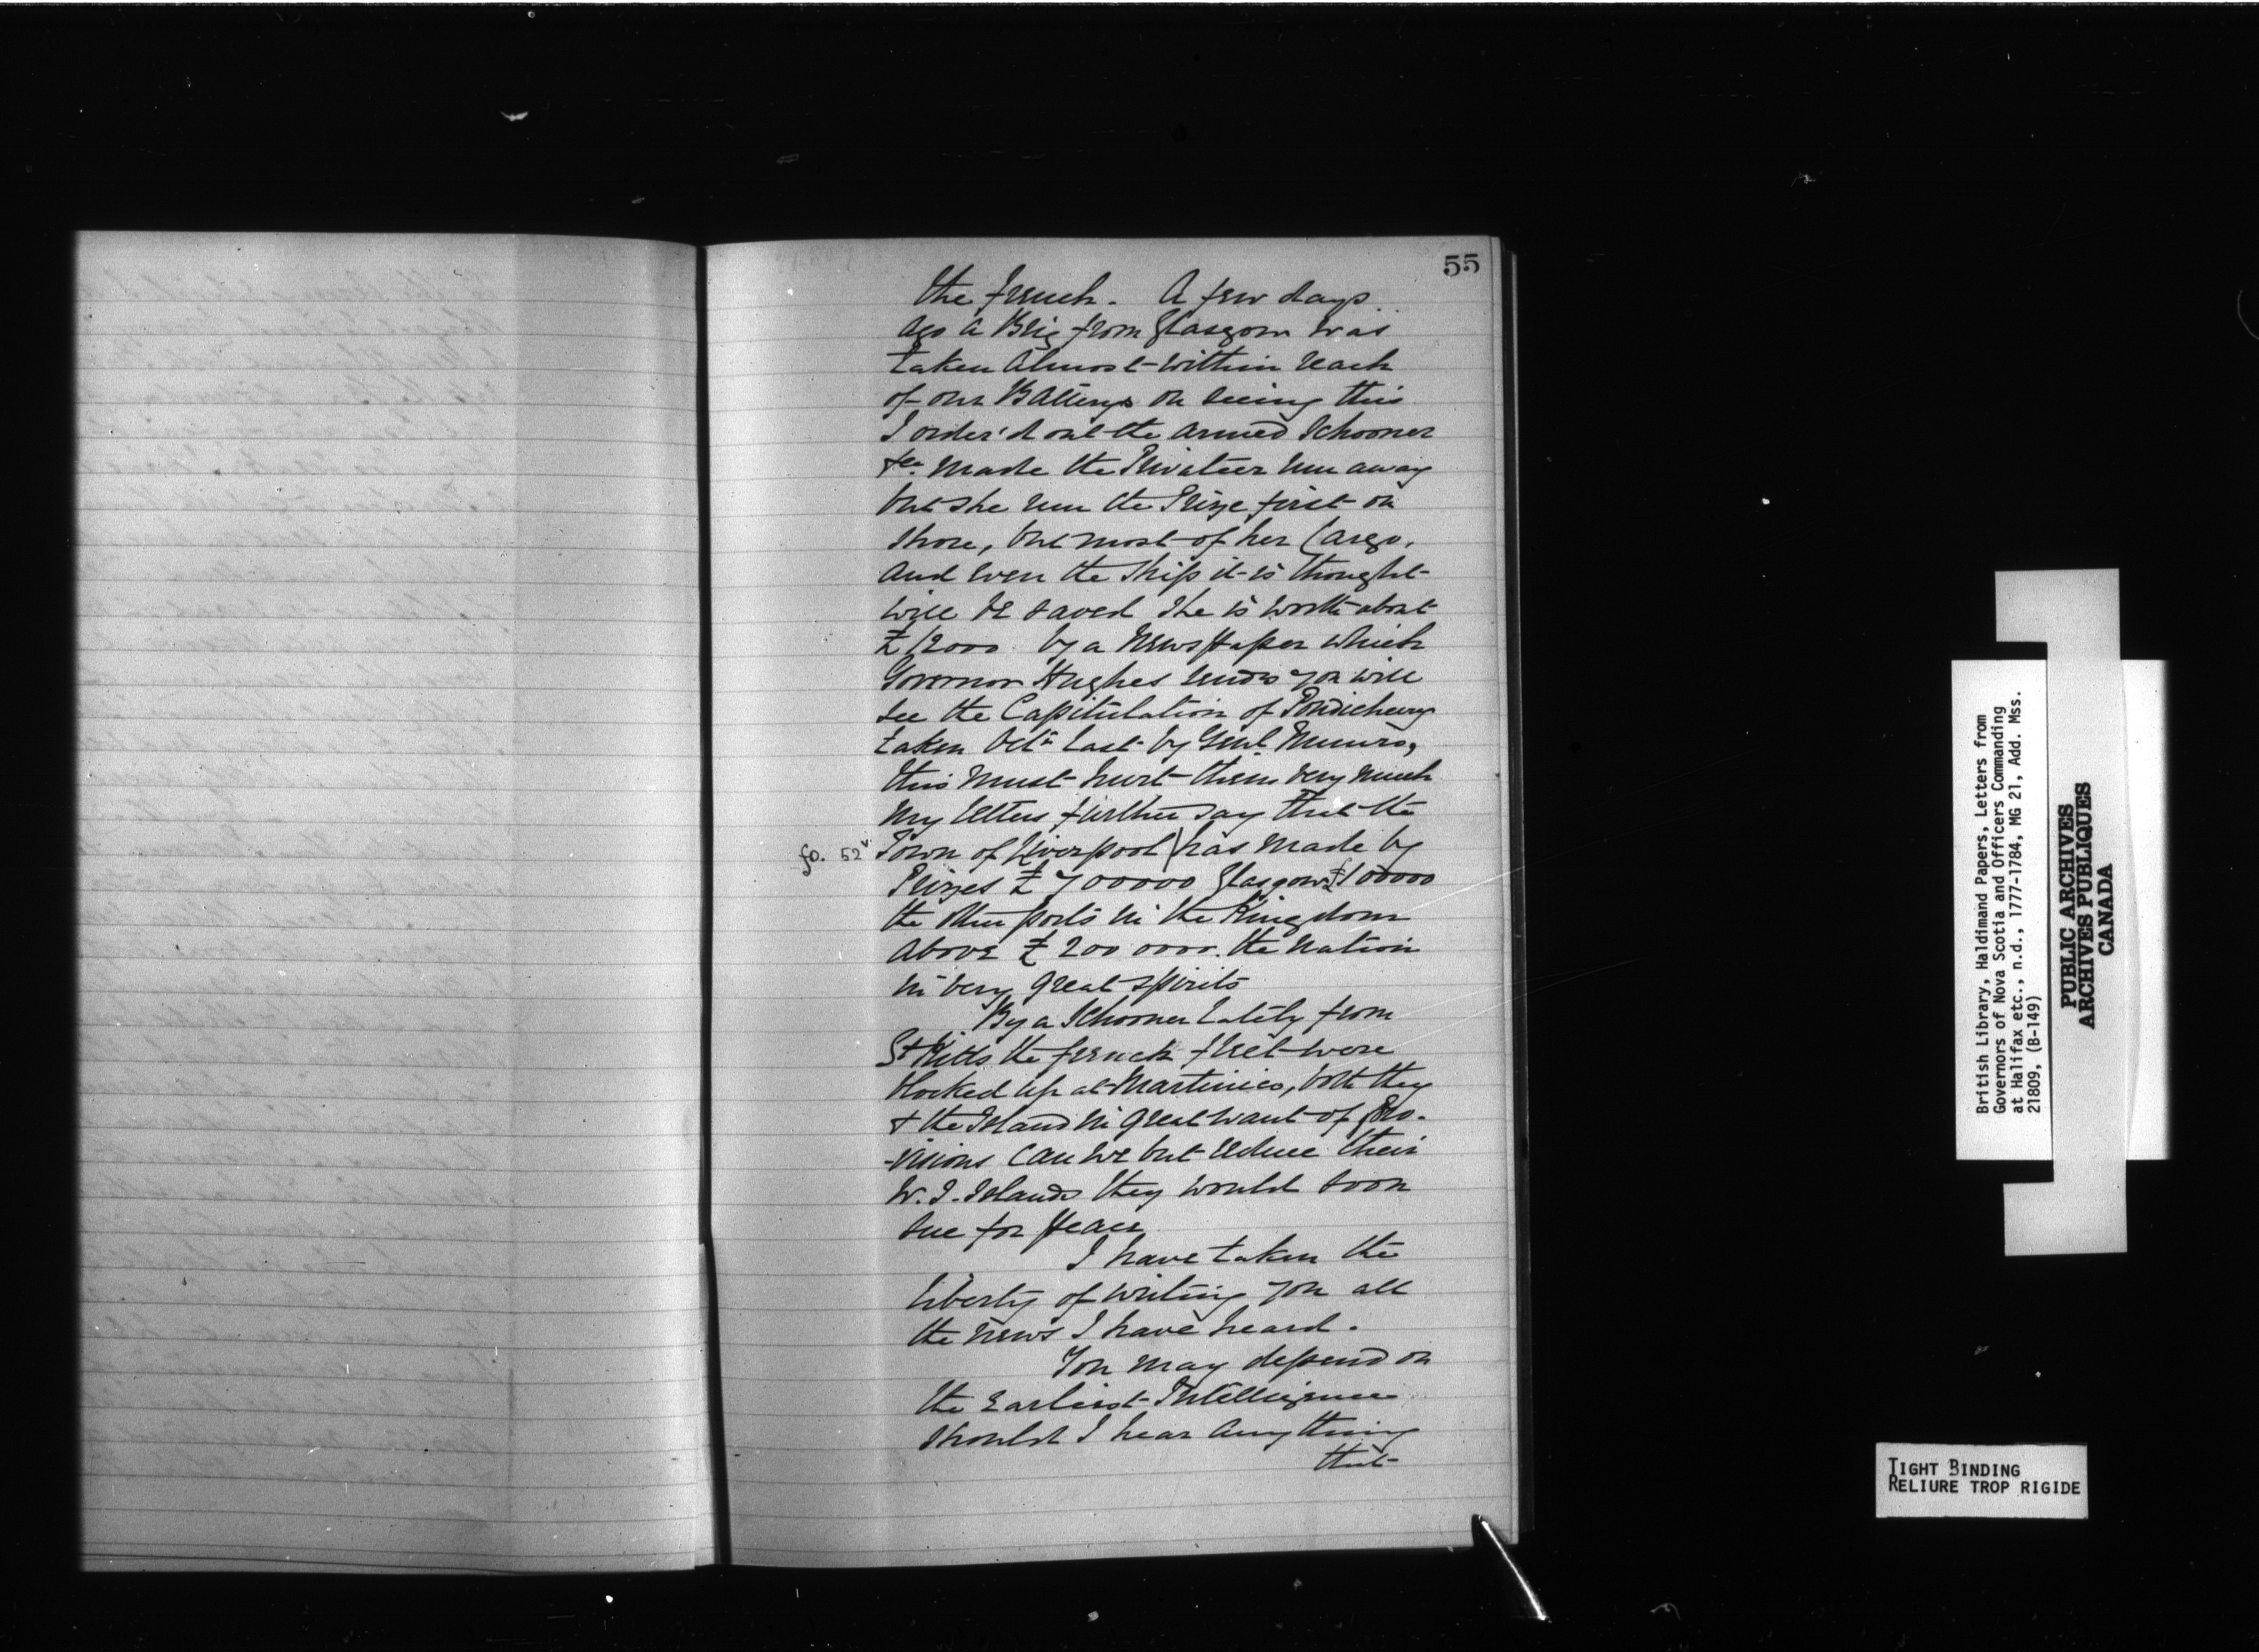 55
the french. A few days
ago a Brig from Glasgow was
taken almost within reach
of our Batterys on seeing this
I order'd out the armed Schooner
&ca. made the Privateer run away
but she run the Prize first on
shore, but most of her Cargo,
and even the ship it is thought
will be saved she is worth about
£12000 by a Newspaper which
Governor Hughes sends you will
see the Capitulation of Pondichery
taken Octr last by Genl. Munro,
this must hurt them very much
my letters further say that the
fo. 52v Town of Liverpool has made by
Prizes £700000 Glasgow £100000
the other ports in the Kingdom
above £2000000. the nation
in very great spirits
By a Schooner Lately from
St Kitts the french fleet were
blocked up at Martinico, both they
& the Island in great want of pro-
-visions can we but reduce their
W. I. Islands they would soon
sue for peace
I have taken the
liberty of writing you all
the news I have heard.
You may depend on
the Earliest Intelligence
should I hear any thing
that
British Library, Haldimand Papers, Letters from
Governors of Nova Scotia and Officers Commanding
at Halifax etc., n.d., 1777-1784, MG 21, Add. Mss.
21809, (B-149)
PUBLIC ARCHIVES
ARCHIVES PUBLIQUES
CANADA
TIGHT BINDING
RELIURE TROP RIGIDE